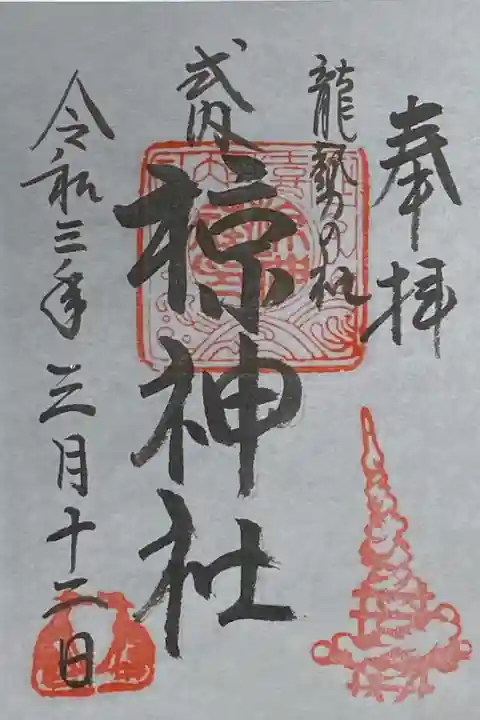 奉拝
龍勢の杜
式内
椋神社
令和三年三月十二日